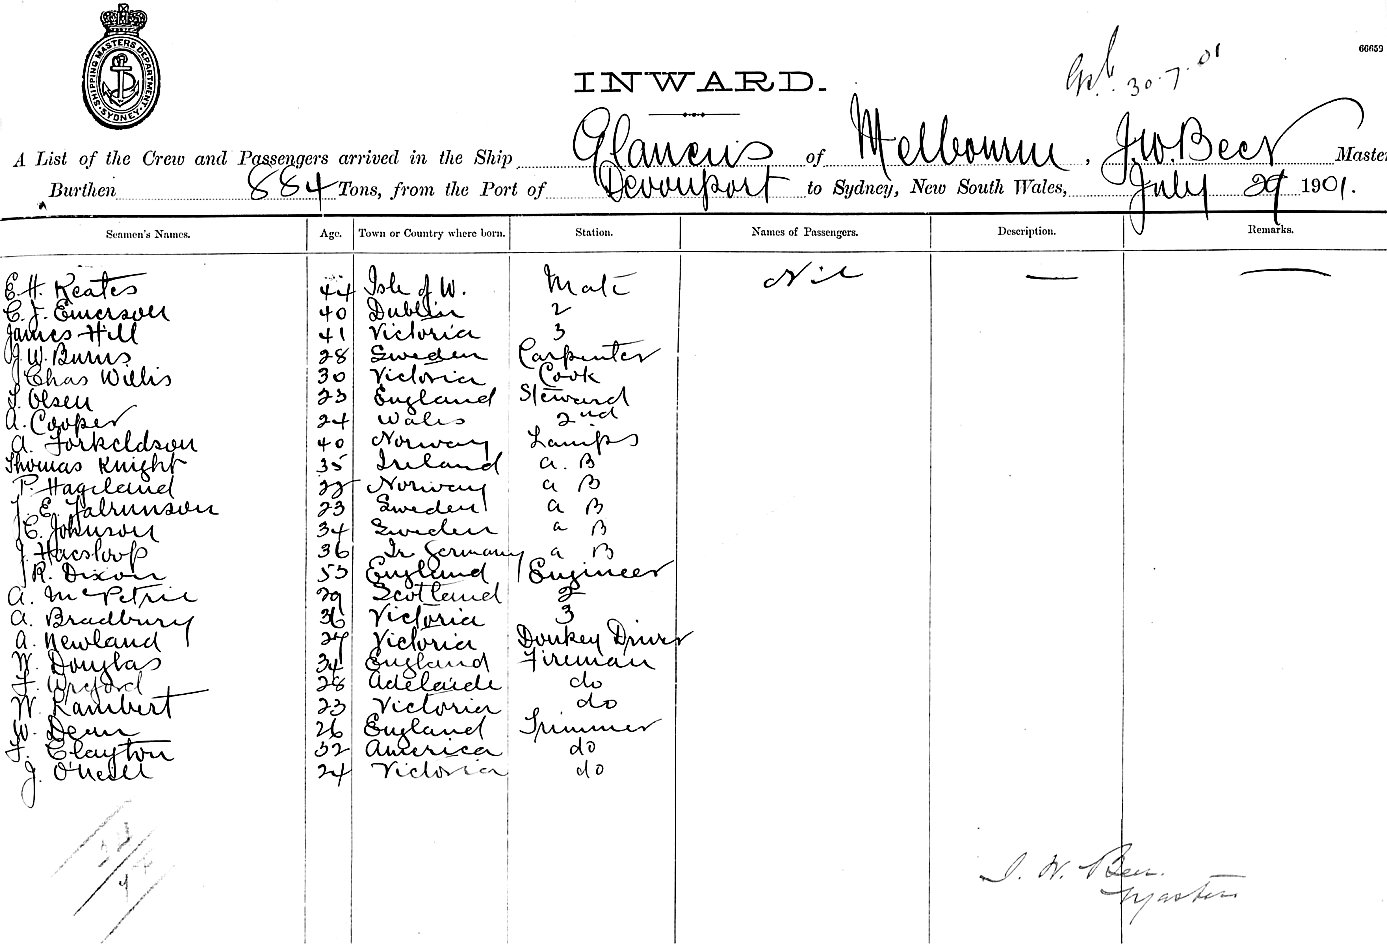 SHIPPING MASTERS DEPARTMENT
SYDNEY
66659
30.7.01
INWARD.
A List of the Crew and Passengers arrived in the Ship Glaucus of Melbourne, J.W. Beer Master
Burthen 884 Tons, from the Port of Devonport to Sydney, New South Wales, July 29 1901.
Seamen's Names. Age. Town or Country where born. Station. Names of Passengers. Description. Remarks.
E.H. Keates 44 Isle of W. Mate Nil —— ——
C.J. Emerson 40 Dublin 2
James Hill 41 Victoria 3
J.W. Burns 28 Sweden Carpenter
Chas Willis 30 Victoria Cook
Olsen 23 England Steward
A. Cooper 24 Wales 2nd
A. Torkeldson 40 Norway Lamps
Thomas Knight 35 Ireland a. B
P. Hageland 22 Norway a B
E. 23 Sweden a B
C. Johnson 34 Sweden a B
J. 36 Germany a B
R. Dixon 53 England 1 Engineer
A. McPetrie 29 Scotland 2
A. Bradbury 36 Victoria 3
A. Newland 27 Victoria Donkey Driver
W. Douglas 34 England Fireman
28 Adelaide do
W. Lambert 23 Victoria do
W. Dean 26 England Trimmer
F. Clayton 32 America do
J. O'Neill 24 Victoria do
J. W. Beer.
Master